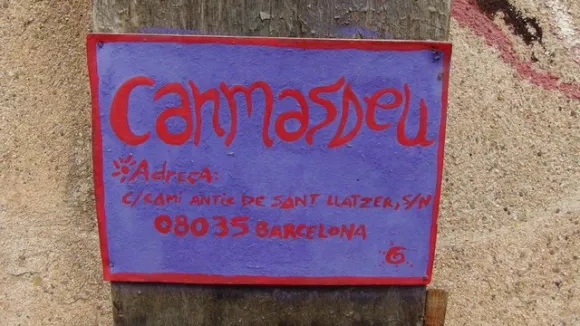 Canmasdeu
Adreça:
C/CAMÍ ANTIC DE SANT LLATZER, S/N
08035 BARCELONA
G